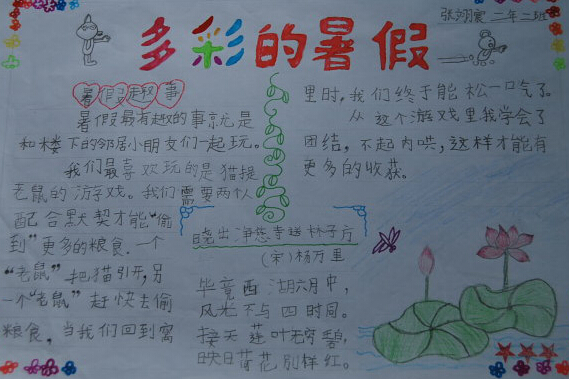 多彩的暑假
张翊宸 二年二班
暑假趣事
暑假最有趣的事就是
和楼下的邻居小朋友们一起玩。
我们最喜欢玩的是猫捉
老鼠的游戏。我们需要两个人
配合默契才能“偷
到”更多的粮食.一个
“老鼠”把猫引开,另
一个“老鼠”赶快去偷
粮食,当我们回到窝
里时,我们终于能松一口气了。
从这个游戏里我学会了
团结,不起内哄,这样才能有
更多的收获。
晓出净慈寺送林子方
(宋)杨万里
毕竟西湖六月中,
风光不与四时同。
接天莲叶无穷碧,
映日荷花别样红。